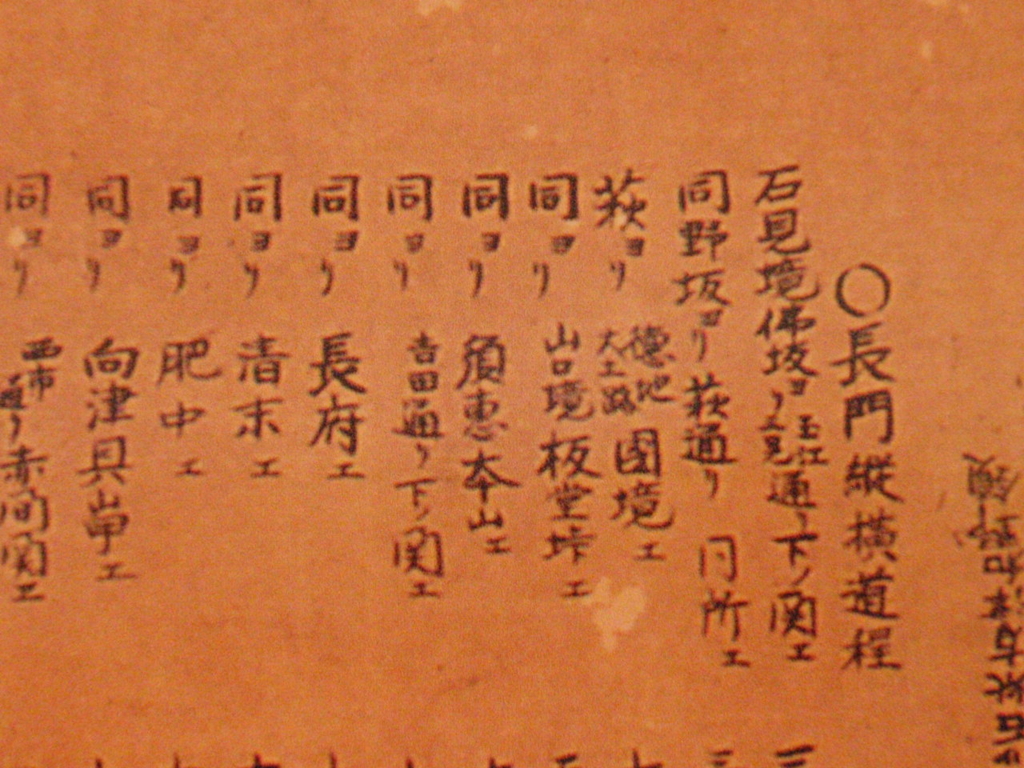 〇長門縦横道程
石見境佛坂ヨリ玉江人見通リ下ノ関エ
同野坂ヨリ萩通リ 同所エ
萩ヨリ徳地大土路國境エ
同ヨリ山口境板堂垰エ
同ヨリ須恵本山エ
同ヨリ吉田通リ下ノ関エ
同ヨリ長府エ
同ヨリ清末エ
同ヨリ肥中エ
同ヨリ向津具岬エ
同ヨリ西市通リ赤間関エ